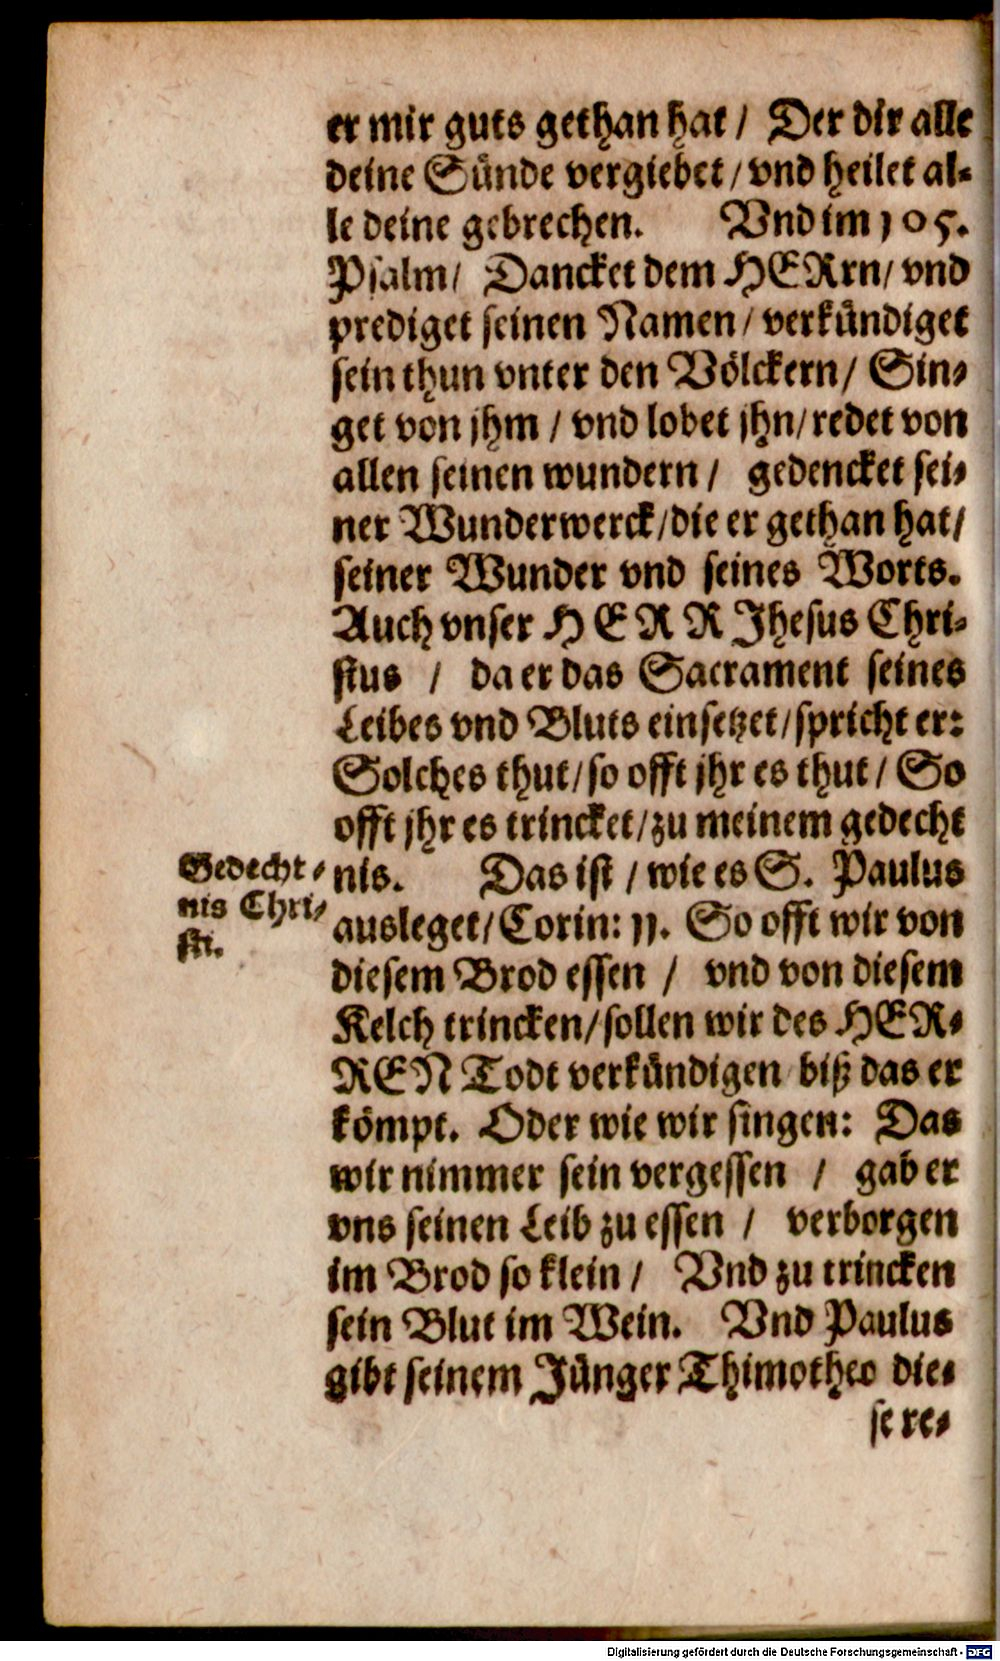 er mir guts gethan hat / Der dir alle
deine Sünde vergiebet / vnd heilet al-
le deine gebrechen. Vnd im 105.
Psalm / Dancket dem HERrn / vnd
prediget seinen Namen / verkündiget
sein thun vnter den Völckern / Sin-
get von jhm / vnd lobet jhn / redet von
allen seinen wundern / gedencket sei-
ner Wunderwerck / die er gethan hat /
seiner Wunder vnd seines Worts.
Auch vnser HERR Jhesus Chri-
stus / da er das Sacrament seines
Leibes vnd Bluts einsetzet / spricht er:
Solches thut / so offt jhr es thut / So
offt jhr es trincket / zu meinem gedecht
nis. Das ist / wie es S. Paulus
ausleget / Corin: 11. So offt wir von
diesem Brod essen / vnd von diesem
Kelch trincken / sollen wir des HER-
REN Todt verkündigen biß das er
kömpt. Oder wie wir singen: Das
wir nimmer sein vergessen / gab er
vns seinen Leib zu essen / verborgen
im Brod so klein / Vnd zu trincken
sein Blut im Wein. Vnd Paulus
gibt seinem Jünger Thimotheo die-
se re-
Gedecht-
nis Chri-
sti.
Digitalisierung gefördert durch die Deutsche Forschungsgemeinschaft - DFG